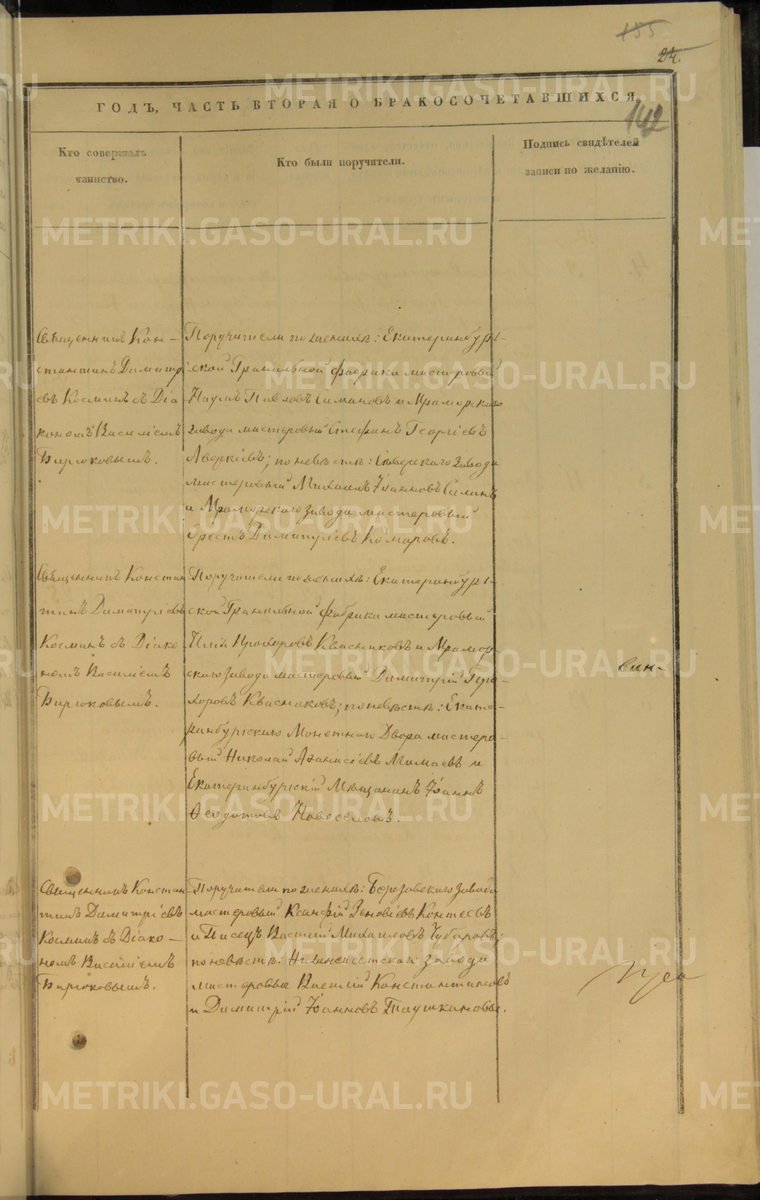 155
24.
142
ГОДЪ, ЧАСТЬ ВТОРАЯ О БРАКОСОЧЕТАВШИХСЯ.
Кто совершалъ
таинство.
Кто были поручители.
Подпись свидѣтелей
записи по желанію.
METRIKI.GASO-URAL.RU
Священникъ Кон-
стантинъ Димитрі
евъ Косминъ съ Діа
кономъ Василіемъ
Бирюковымъ.
Поручители по женихѣ: Екатеринбург-
ской Гранильной фабрики мастеровый
Наумъ Павловъ Симановъ и Мраморскаго
завода мастеровый Стефанъ Георгіевъ
Аверкіевъ; по невѣстѣ: Сѣверскаго завода
мастеровый Михаилъ Іоанновъ
и Мраморскаго завода мастеровый
Орестъ Димитріевъ Комаровъ.
Священникъ Констан
тинъ Димитріевъ
Косминъ съ Діако
номъ Василіемъ
Бирюковымъ.
Поручители по женихѣ: Екатеринбург-
ской Гранильной фабрики мастеровый
Илія Прохоровъ Квасниковъ и Мрамор-
скаго завода мастеровый Димитрій Про-
хоровъ Квасниковъ; по невѣстѣ: Екате-
ринбургскаго Монетнаго Двора мастеро-
вый Николай Аѳанасіевъ Мамаевъ и
Екатеринбургскій Мѣщанинъ Іоаннъ
Ѳеодотовъ Новоселовъ.
Священникъ Констан
тинъ Димитріевъ
Косминъ съ Діако-
номъ Василіемъ
Бирюковымъ.
Поручители по женихѣ: Березовскаго завода
мастеровый Зеновіевъ
и Писецъ Василій Михаиловъ Чубаровъ;
по невѣстѣ: завода
мастеровые Василій Константиновъ
и Димитрій Іоанновъ